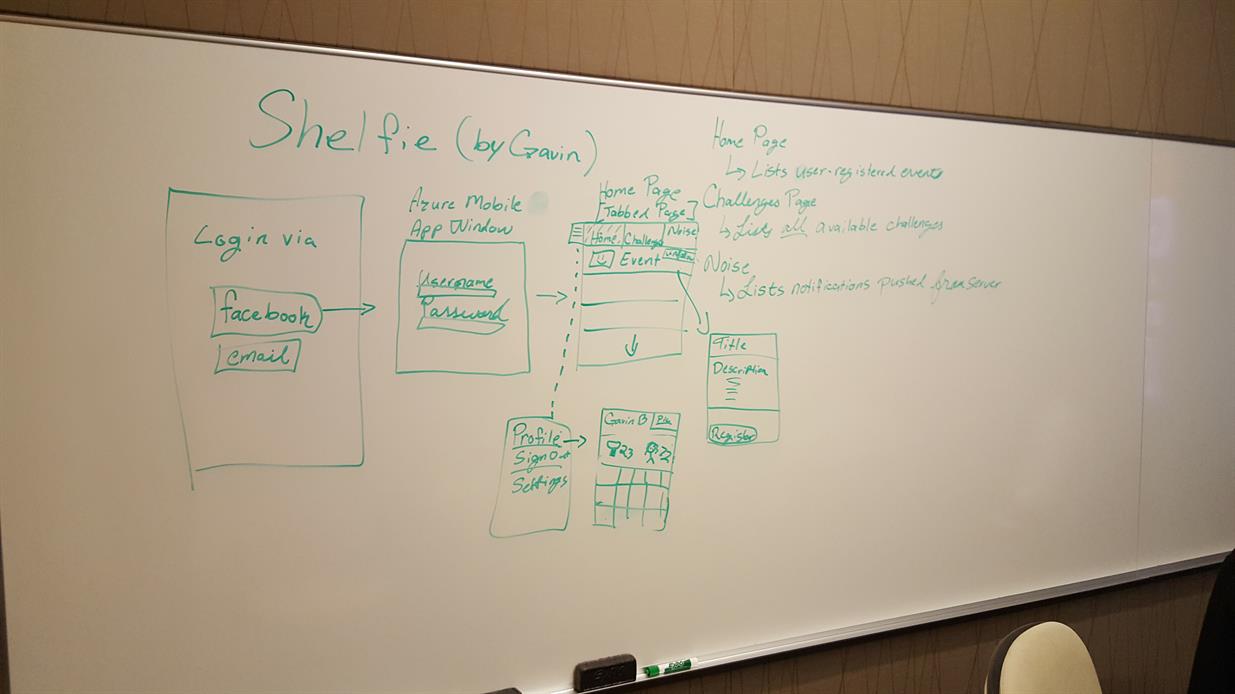 Shelfie (by Gavin)
Login via
facebook
email
Azure Mobile
App Window
Username
Password
Home Page
[Tabbed Page]
Home Challenges Noise
Event
Profile
Sign Out
Settings
Gavin B
23 22
Title
Description
Register
Home Page
↳ Lists user-registered events
Challenges Page
↳ Lists all available challenges
Noise
↳ Lists notifications pushed from server
EXPO